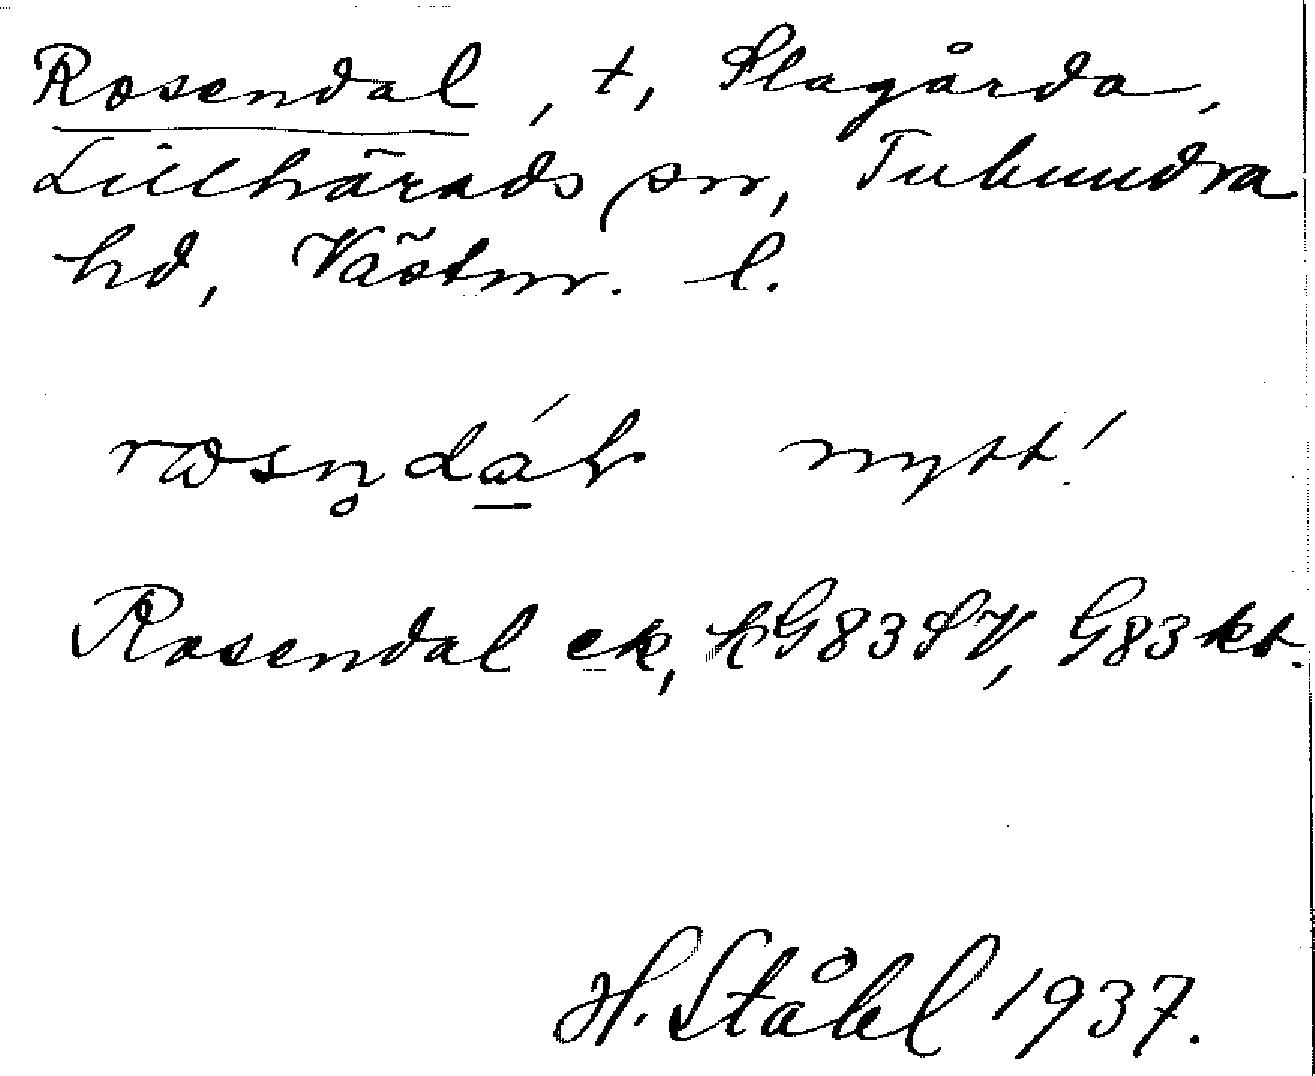 Rosendal, t, Slagårda,
Lillhärads sn, Tuhundra
hd, Västm. l.
nytt!
Rosendal ek, hG83SV, G83kt.
H. Ståhl 1937.